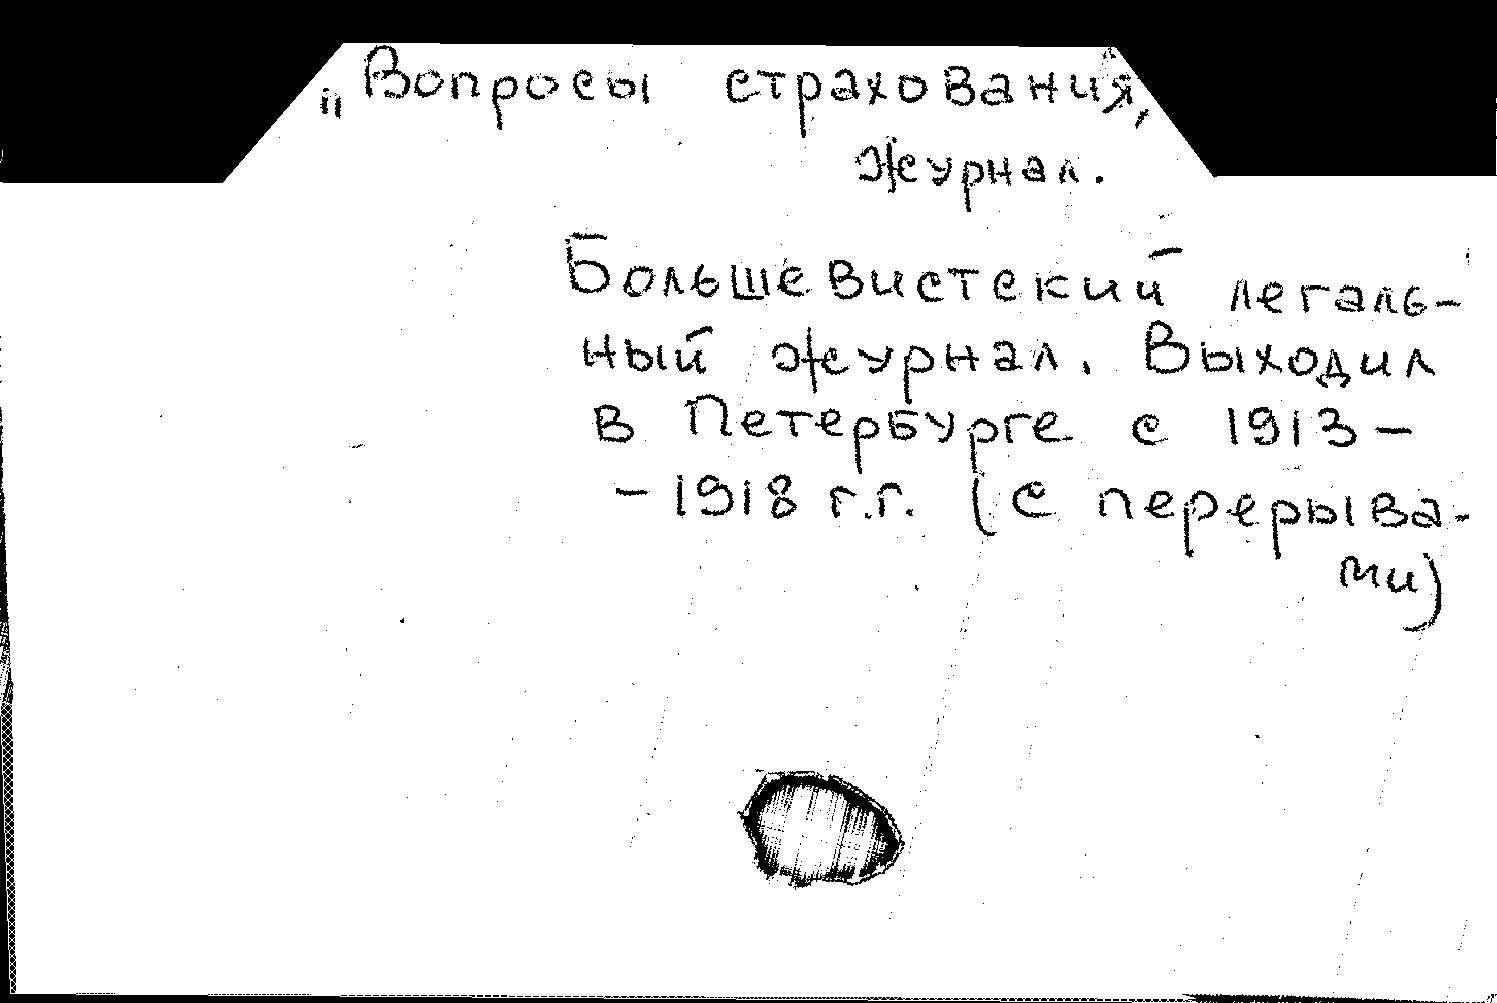 „Вопросы страхования",
журнал.
Большевистский легаль-
ный журнал. Выходил
в Петербурге с 1913 -
- 1918 г.г. (с перерыва-
ми)